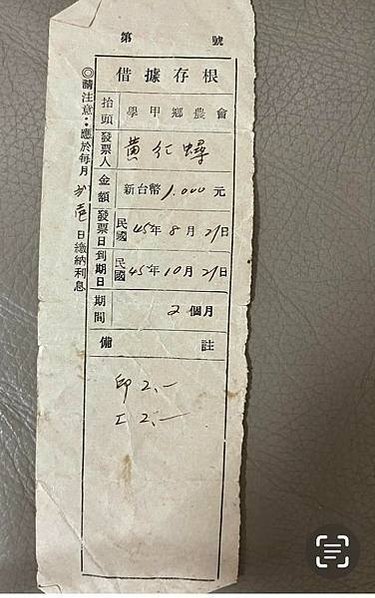 第 號
借據存根
抬頭 學甲鄉農會
發票人 黃仁
金額 新台幣 1,000 元
發票日 民國 45年 8月 21日
到期日 民國 45年 10月 21日
期間 2 個月
備 註
印 2.—
工 2.—
◎請注意：應於每月 廿壱 日繳納利息